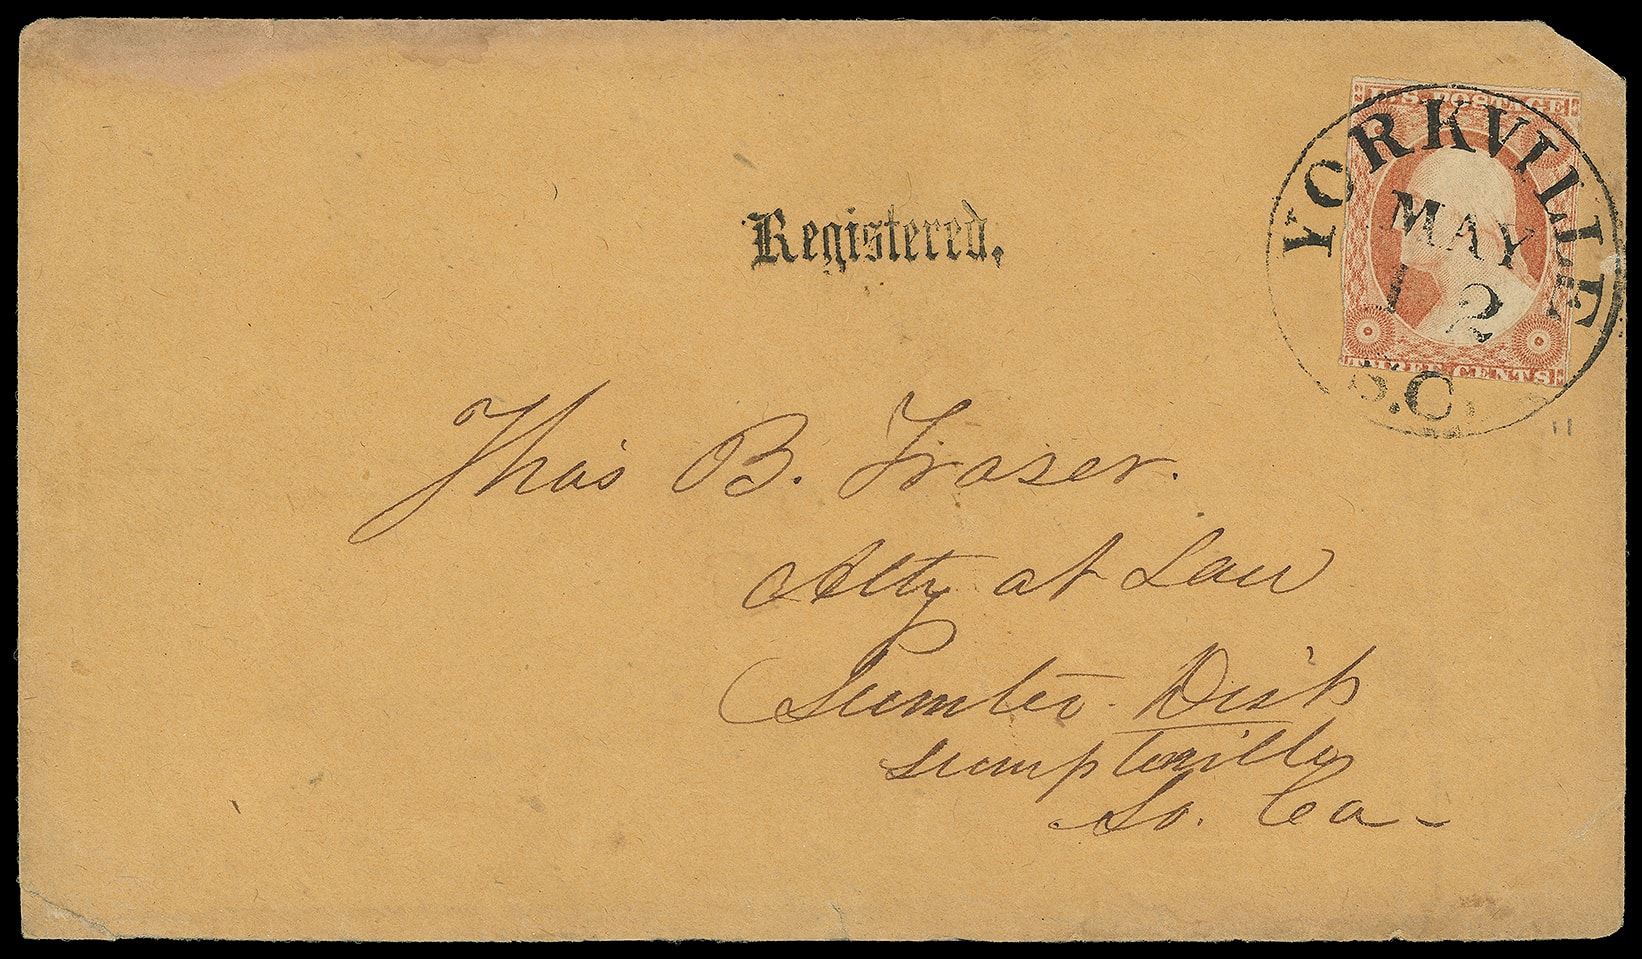 U.S. POSTAGE
YORKVILLE
MAY
12
S.C.
THREE CENTS
Registered.
Thos B. Fraser.
Atty at Law
Sumter Dist
sumpterville
So. Ca-